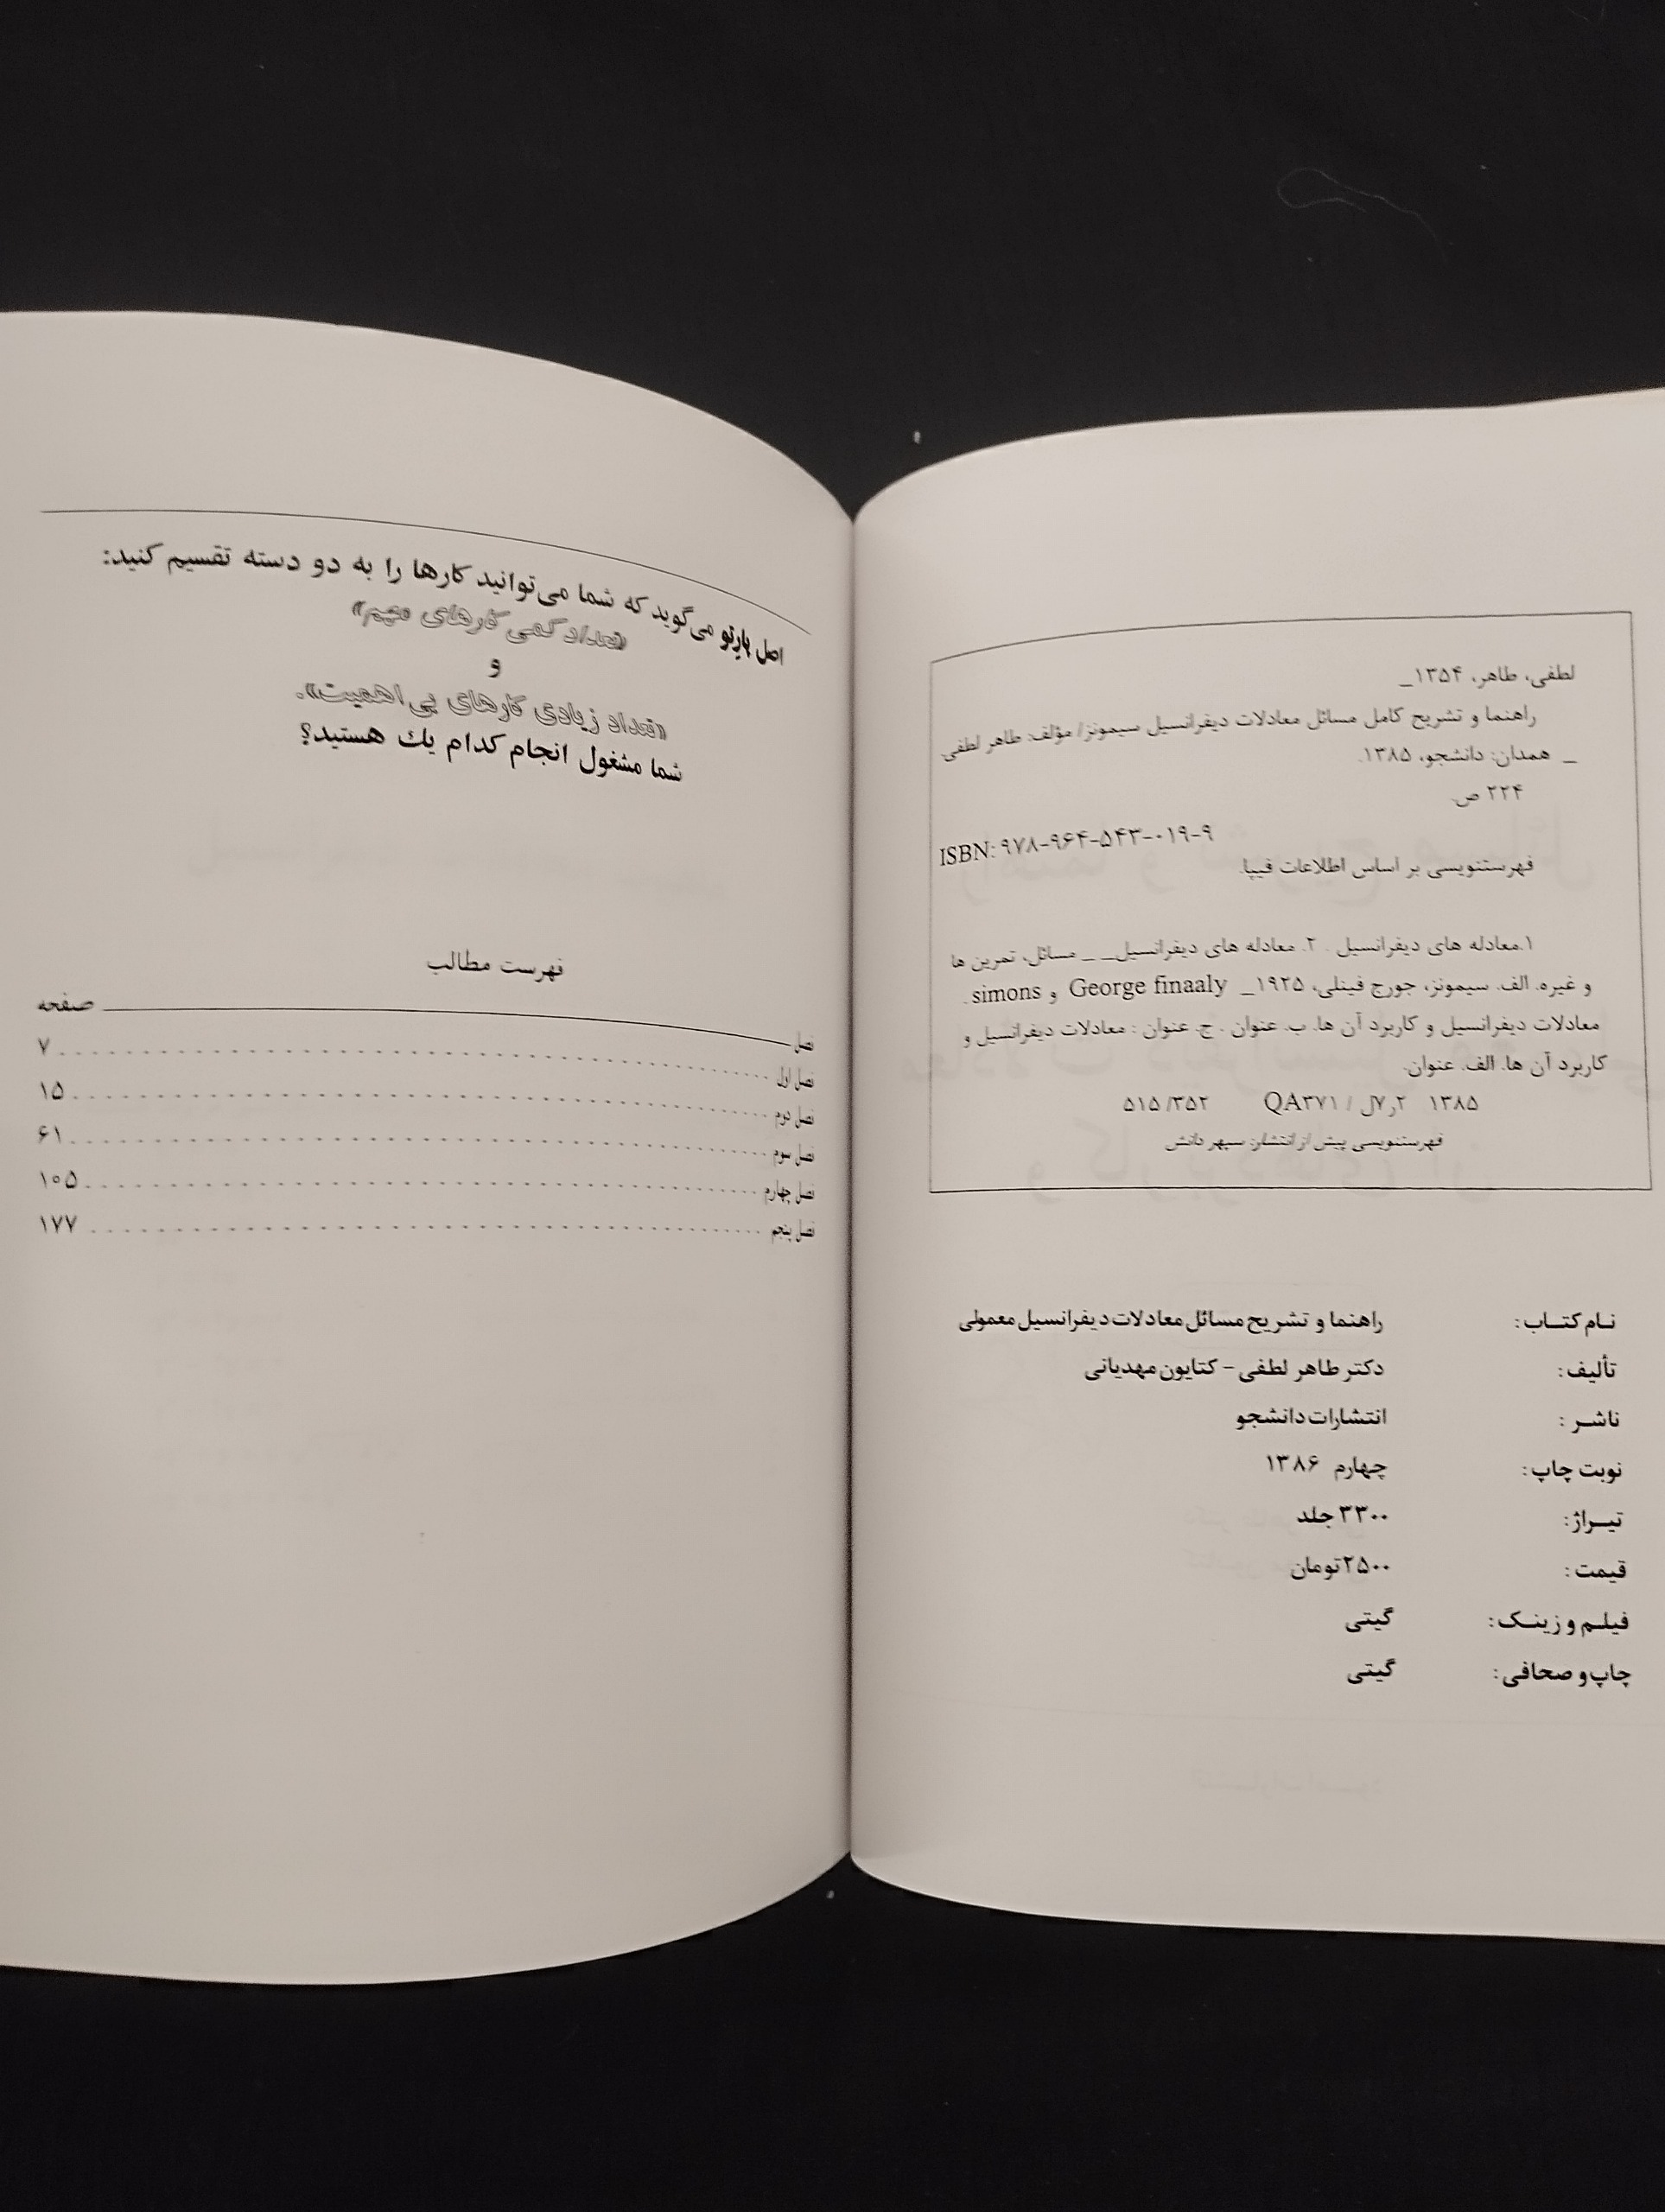 لطفی، طاهر، ۱۳۵۴_
راهنما و تشریح کامل مسائل معادلات دیفرانسیل سیمونز/ مؤلف: طاهر لطفی.
_ همدان: دانشجو، ۱۳۸۵.
۲۲۴ ص.
ISBN: ۹۷۸-۹۶۴-۵۴۳-۰۱۹-۹
فهرستنویسی بر اساس اطلاعات فیپا.
۱.معادله های دیفرانسیل . ۲. معادله های دیفرانسیل_ _ مسائل، تمرین ها
و غیره. الف. سیمونز، جورج فینلی، ۱۹۲۵_ George finaaly و simons .
معادلات دیفرانسیل و کاربرد آن ها. ب. عنوان . ج. عنوان : معادلات دیفرانسیل و
کاربرد آن ها. الف. عنوان.
۱۳۸۵ ۲ر۷ل / QA۳۷۱ ۵۱۵/۳۵۲
فهرستنویسی پیش از انتشار: سپهر دانش
نام کتاب: راهنما و تشریح مسائل معادلات دیفرانسیل معمولی
تألیف: دکتر طاهر لطفی - کتایون مهدیانی
ناشر : انتشارات دانشجو
نوبت چاپ: چهارم ۱۳۸۶
تیراژ: ۳۳۰۰ جلد
قیمت : ۲۵۰۰ تومان
فیلم و زینک: گیتی
چاپ و صحافی: گیتی
اصل پارتو می‌گوید که شما می‌توانید کارها را به دو دسته تقسیم کنید:
«تعداد کمی کارهای مهم»
و
«تعداد زیادی کارهای بی‌اهمیت».
شما مشغول انجام کدام یك هستید؟
فهرست مطالب
فصل صفحه
فصل اول ۷
فصل دوم ۱۵
فصل سوم ۶۱
فصل چهارم ۱۰۵
فصل پنجم ۱۷۷